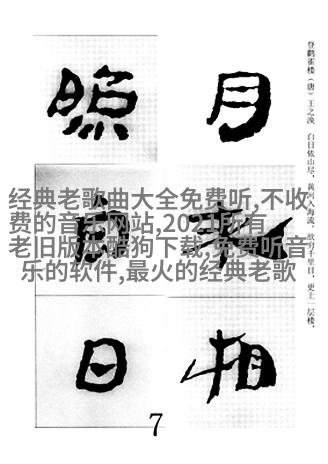 登鹳雀楼（唐）王之涣 白日依山尽，黄河入海流，欲穷千里目，更上一层楼。
月来相
照白日
经典老歌曲大全免费听,不收
费的音乐网站,2021所有
老旧版本酷狗下载,免费听音
乐的软件,最火的经典老歌
7